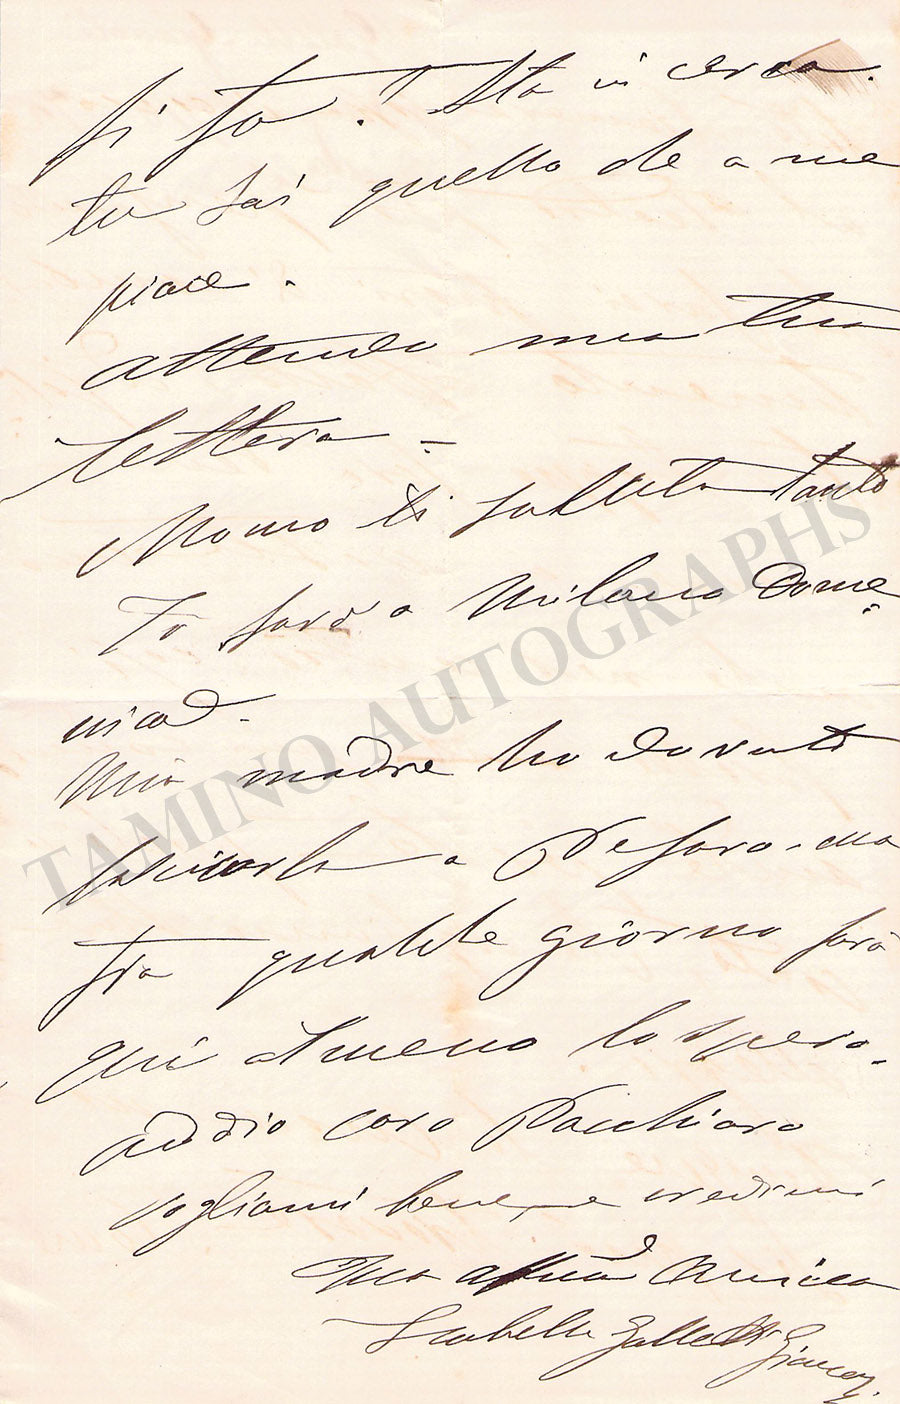 si fa! Sta in cerca.
tu sai quello che a me
piace.
attendo una tua
lettera -
Momo ti saluta tanto
Io sarò a Milano Dome-
nica.
Mia madre ho dovuto
lasciarla a Pesaro - ma
fra qualche giorno sarà
qui almeno lo spero.
addio caro Pacchiaro
vogliami bene, e credimi
tua affma Amica
Isabella Galletti Gianoli
TAMINO AUTOGRAPHS